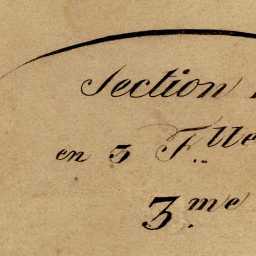 Section
en 3 F.lle
3.me